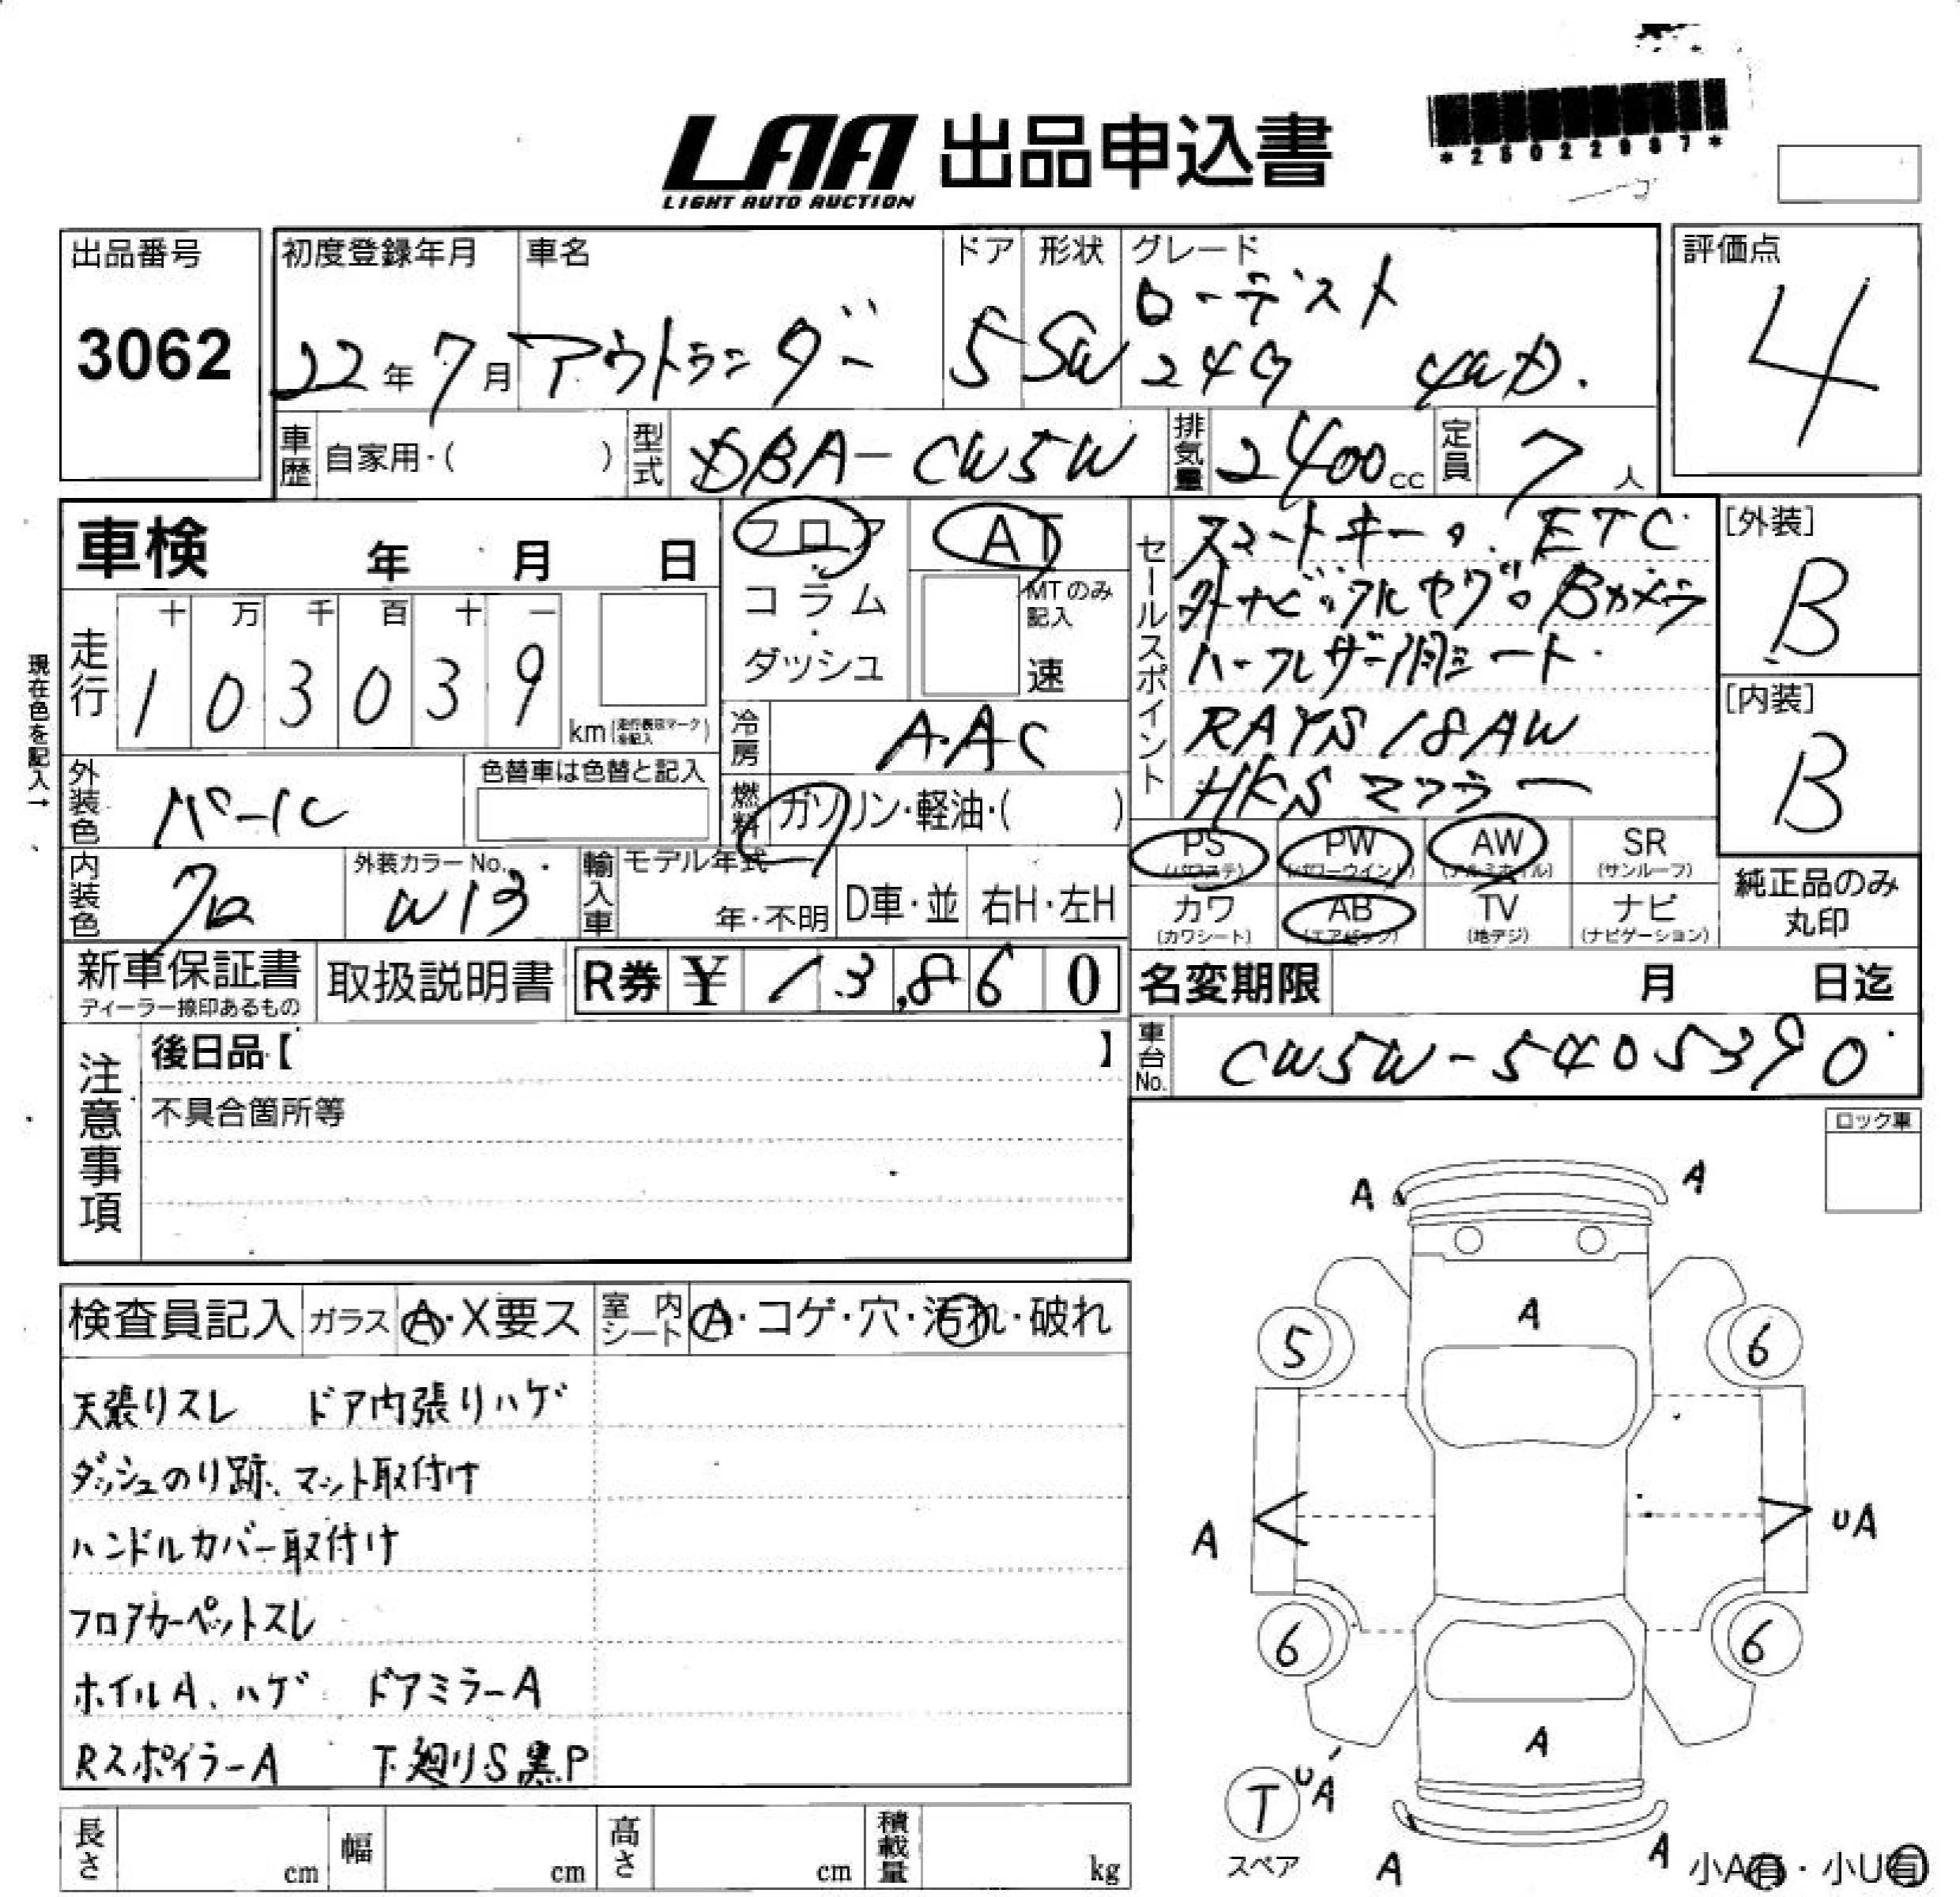 *25022937*
LAA 出品申込書
LIGHT AUTO AUCTION
出品番号 初度登録年月 車名 ドア 形状 グレード 評価点
3062 22年 7月 アウトランダー 5 SW ローデスト 24G 4WD. 4
車歴 自家用・( ) 型式 DBA-CW5W 排気量 2400cc 定員 7人
車検 年 月 日 フロア AT
コラム・ダッシュ MTのみ記入 速
セールスポイント スマートキー。ETC
外ナビ・フルセグ。Bカメラ
ハーフレザー調シート
RAYS 18AW
HKSマフラー
[外装] B
[内装] B
現在色を記入→
走行 十 万 千 百 十 一
1 0 3 0 3 9 km (走行表示マークを記入)
冷房 A.AC
外装色 パール 色替車は色替と記入
燃料 ガソリン・軽油・( )
PS (パワステ) PW (パワーウインド) AW (アルミホイル) SR (サンルーフ)
カワ (カワシート) AB (エアバック) TV (地デジ) ナビ (ナビゲーション)
純正品のみ丸印
内装色 クロ 外装カラーNo. W13 輸入車 モデル年式 年・不明 D車・並 右H・左H
新車保証書 ディーラー捺印あるもの 取扱説明書 R券 ¥ 13,860
名変期限 月 日迄
車台No. CW5W-5405390
注意事項 後日品【 】
不具合箇所等
ロック車
検査員記入 ガラス A・X要ス 室内シート A・コゲ・穴・汚れ・破れ
天張りスレ ドア内張りハゲ
ダッシュのり跡、マット取付け
ハンドルカバー取付け
フロアカーペットスレ
ホイルA、ハゲ ドアミラーA
RスポイラーA 下廻りS黒P
A A
A
5 6
A UA
6 6
A
T UA
スペア A A 小A有・小U有
長さ cm 幅 cm 高さ cm 積載量 kg